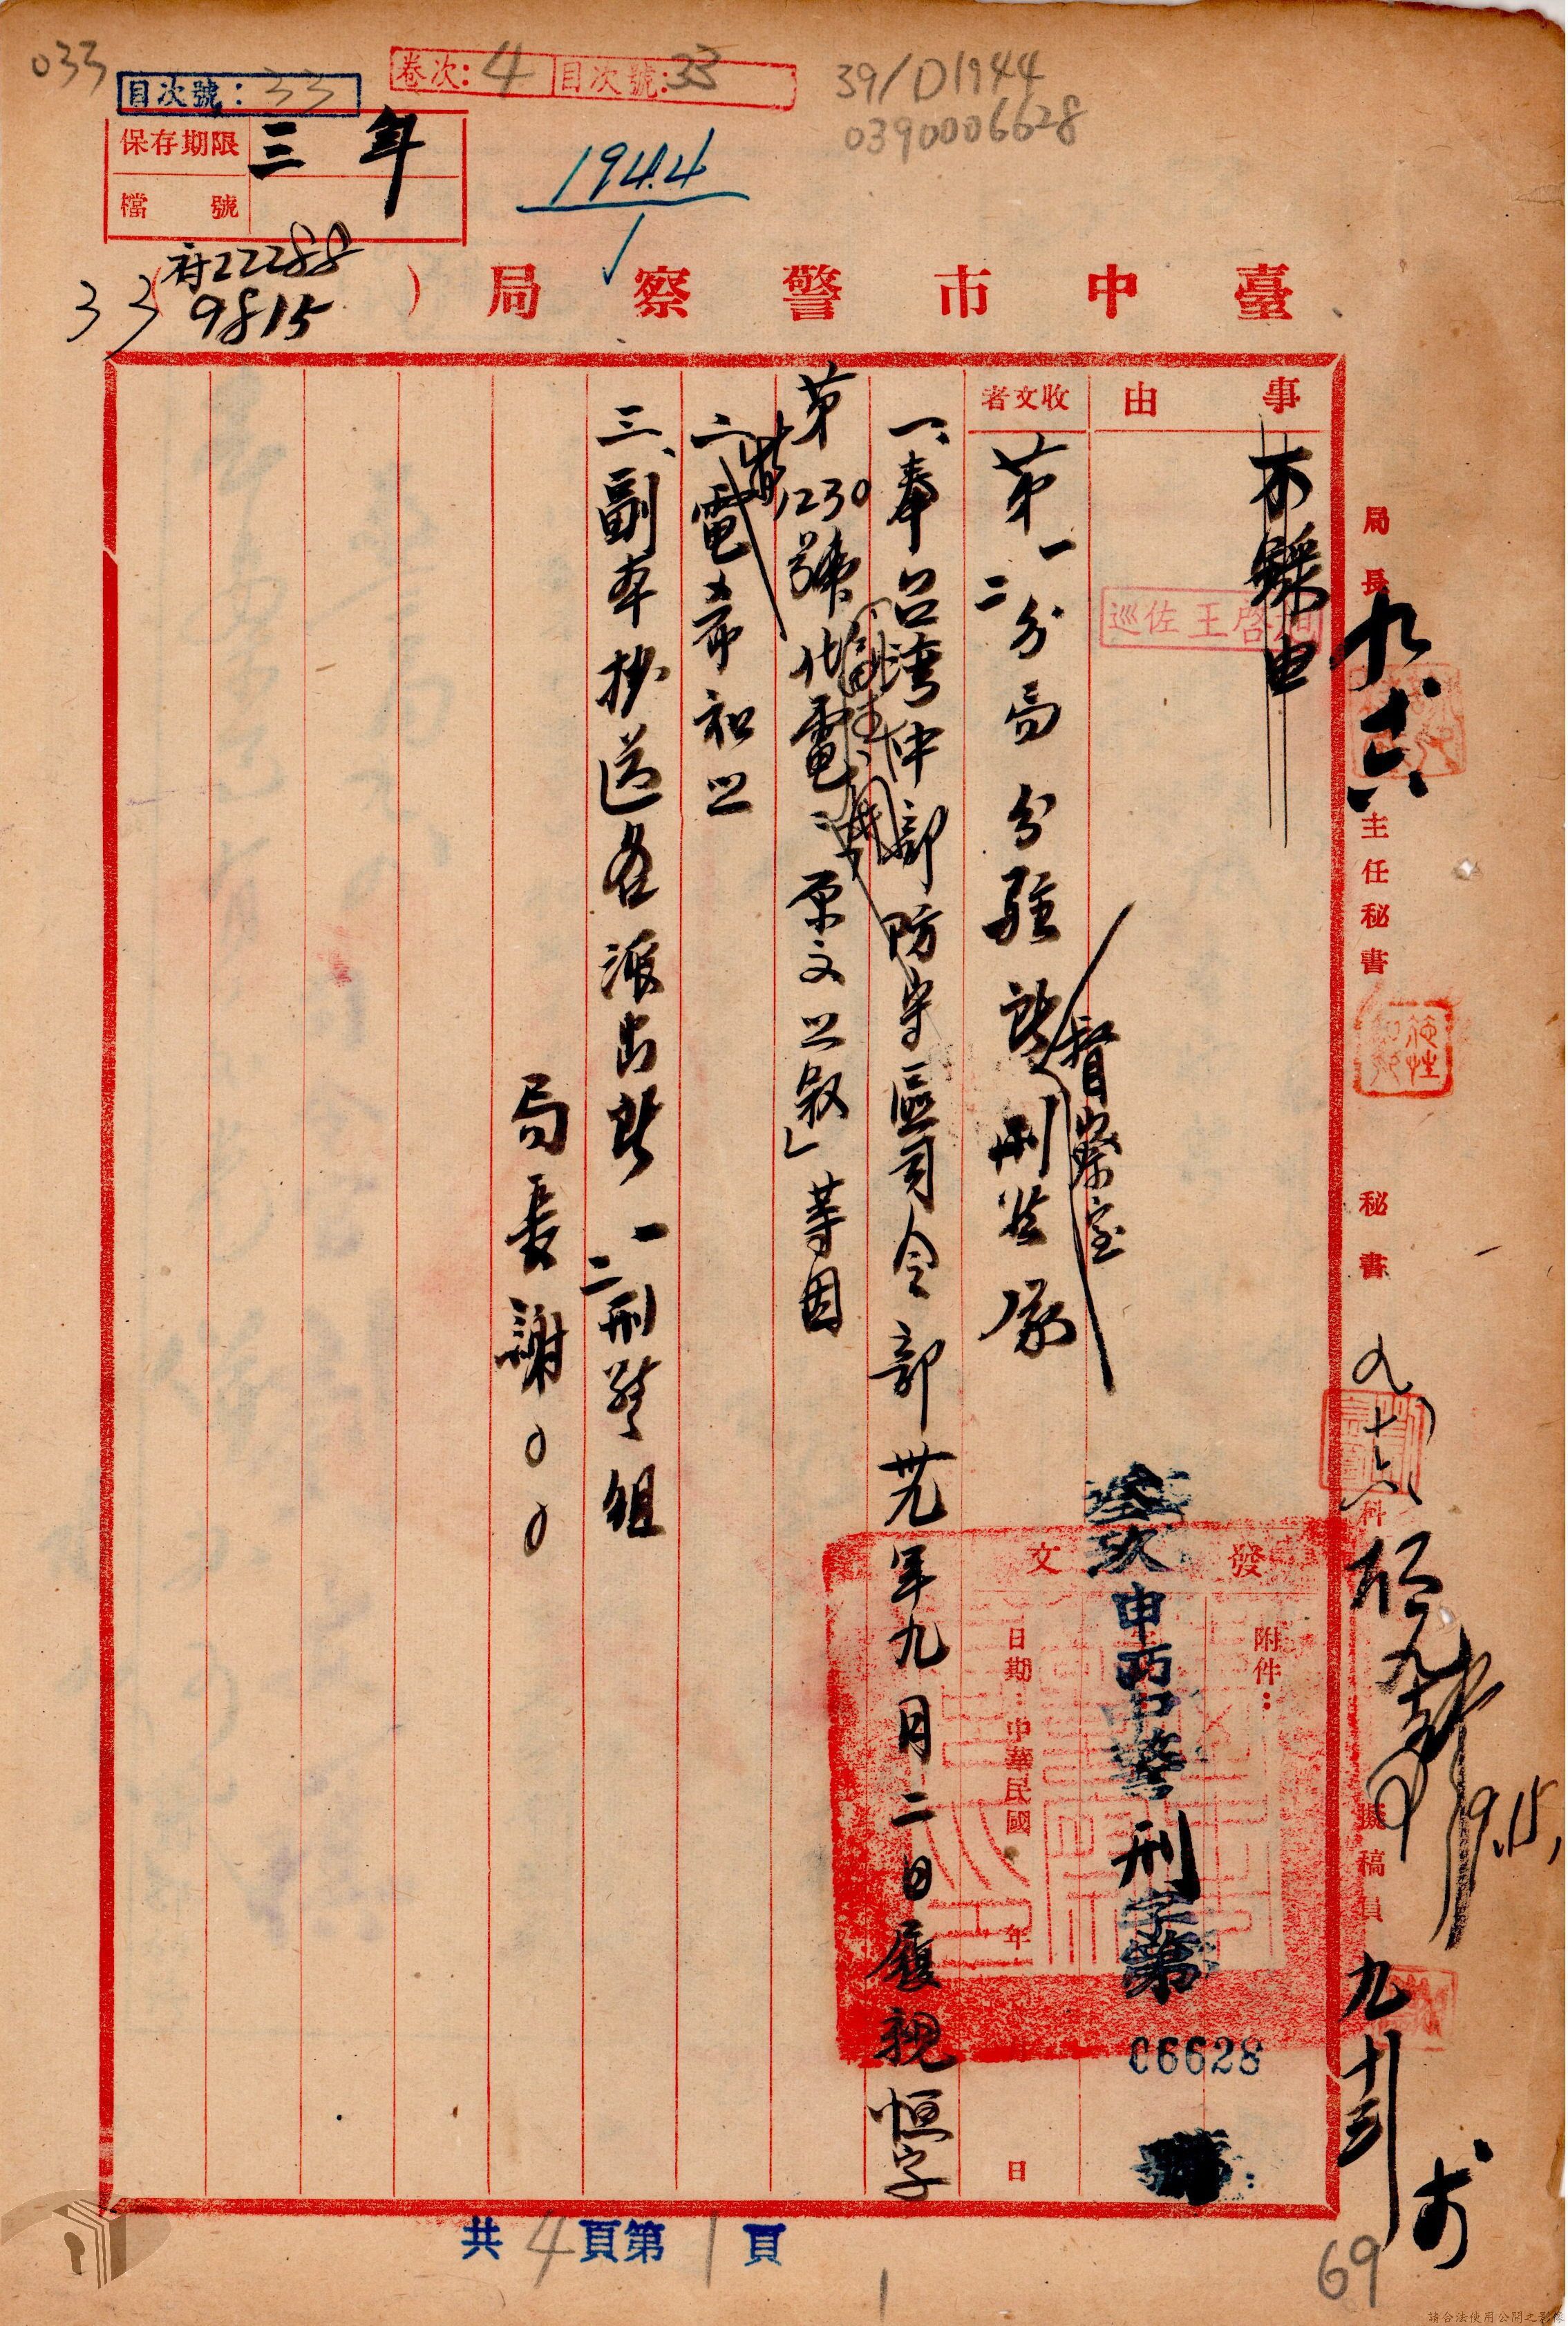 033
目次號：33
卷次：4 目次號：33
39/D1944
0390006628
保存期限 三年
檔號
194.4
府22288
9815
33
臺中市警察局（ ）
事由
收文者
第一二分局 分駐所 刑警隊
督察室
巡佐王啓
參玖申
警刑字第06628
發文
附件：
日期：中華民國 年 日
一、奉台灣中部防守區司令部卅九年九月二日
恒字
第1230號代電：「原文照敘」等因
二、電希知照
三、副本抄送各派出所 一二刑警組
局長謝○○
局長
九十六
主任秘書
秘書
九十六
科
9.15.
擬稿員
九十三
共4頁第1頁
1
69
請合法使用公開之影像